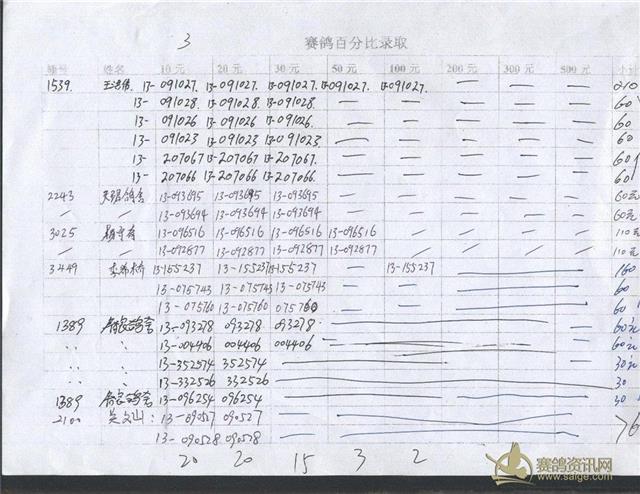 3 赛鸽百分比录取
编号 姓名 10元 20元 30元 50元 100元 200元 300元 500元 小计
1539. 13-091027. 13-091027. 13-091027. 13-091027. 13-091027. — — — 210
13-091028. 13-091028. 13-091028. — — — — — 60
13-091026 13-091026 13-091026. — — — — — 60
13-091023 13-091023 13-091023 — — — — — 60
13-207067. 13-207067 13-207067. — — — — — 60
13-207066 13-207066 13-207066. — — — — — 60
2243 天琪鸽舍 13-093695 13-093695 13-093695 — — — — — 60元
〃 〃 13-093694 13-093694 13-093694 — — — — — 60元
3025 13-096516 13-096516 13-096516 13-096516 — — — — 110元
〃 〃 13-092877 13-092877 13-092877 13-092877 — — — — 110元
3449 13-155237 13-155237 13-155237 — 13-155237 — 160
13-075743 13-075743 13-075743 — — — 60
13-075760 13-075760 075760 — — 60
1389 13-093278 093278 093278 — 60元
〃 〃 13-004406 004406 004406 — — 60元
〃 〃 13-352574 352574 — — 30元
〃 〃 13-332526 332526 — 30
1389 13-096254 096254 — 30
2100 吴文山: 13-090527 090527 —
13-090528 090528 — —
20 20 15 3 2
赛鸽资讯网
www.saige.com